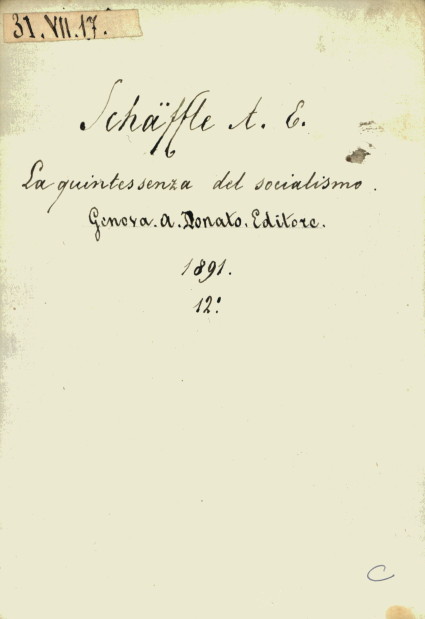 31.VII.17.
Schäffle A. E.
La quintessenza del socialismo.
Genova. A. Donato. Editore.
1891.
12º.
C